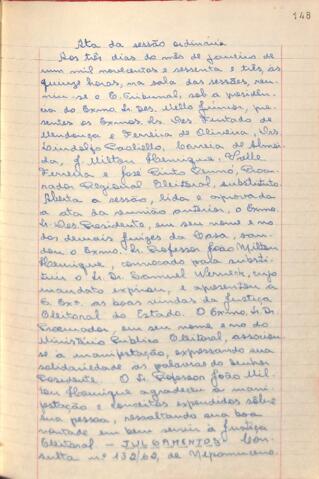 148
Ata da sessão ordinária
Aos três dias do mês de janeiro de
um mil novecentos e sessenta e três, às
quinze horas, na sala das sessões, reu-
niu-se o E. Tribunal, sob a presidên-
cia do Exmo. Sr. Des. Mello Júnior, pre-
sentes os Exmos. Srs. Des. Furtado de
Mendonça e Ferreira de Oliveira, Drs.
Lindolfo Paoliello, Correia de Almei-
da, J. Milton Henrique, Valle
Ferreira e José Pinto Renno, Procu-
rador Regional Eleitoral, substituto.
Aberta a sessão, lida e aprovada
a ata da reunião anterior, o Exmo.
Sr. Des. Presidente, em seu nome e no
dos demais juízes da Casa, sau-
dou o Exmo. Sr. Professor João Milton
Henrique, convocado para substi-
tuir o Sr. Dr. Samuel Werneck, cujo
mandato expirou, e apresentou a
S. Exª. as boas vindas da Justiça
Eleitoral do Estado. O Exmo. Sr. Dr.
Procurador, em seu nome e no do
Ministério Público Eleitoral, associou-
se à manifestação, expressando sua
solidariedade às palavras do Senhor
Presidente. O Sr. Professor João Mil-
ton Henrique agradeceu a mani-
festação e conceitos expendidos sôbre
sua pessoa, ressaltando sua boa
vontade em bem servir à Justiça
Eleitoral - JULGAMENTOS Con-
sulta nº 132/62, de Nepomuceno.